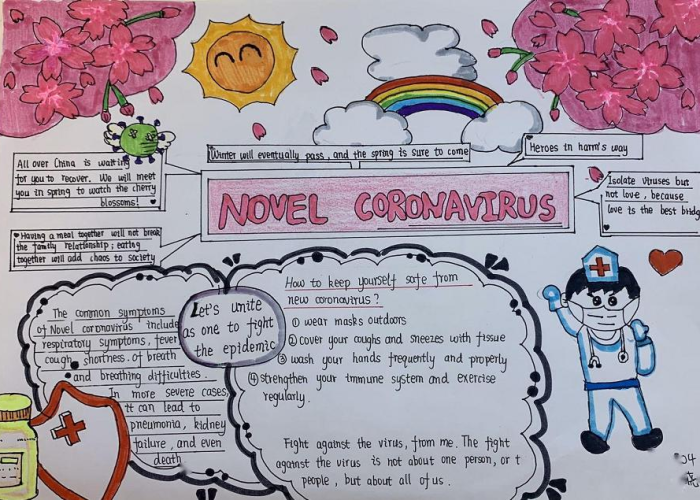 All over China is waiting
for you to recover. We will meet
you in spring to watch the cherry
blossoms!
Winter will eventually pass, and the spring is sure to come
Heroes in harm's way
Isolate viruses but
not love, because
love is the best bridg
Having a meal together will not break
the family relationship; eating
together will add chaos to society
NOVEL CORONAVIRUS
The common symptoms
of Novel coronavirus include
respiratory symptoms, fever
cough, shortness of breath
and breathing difficulties.
In more severe cases,
it can lead to
pneumonia, kidney
failure, and even
death
Let's unite
as one to fight
the epidemic
How to keep yourself safe from
new coronavirus?
① wear masks outdoors
② cover your coughs and sneezes with tissue
③ wash your hands frequently and properly
④ strengthen your immune system and exercise
regularly.
Fight against the virus, from me. The fight
against the virus is not about one person, or t
people, but about all of us.
04